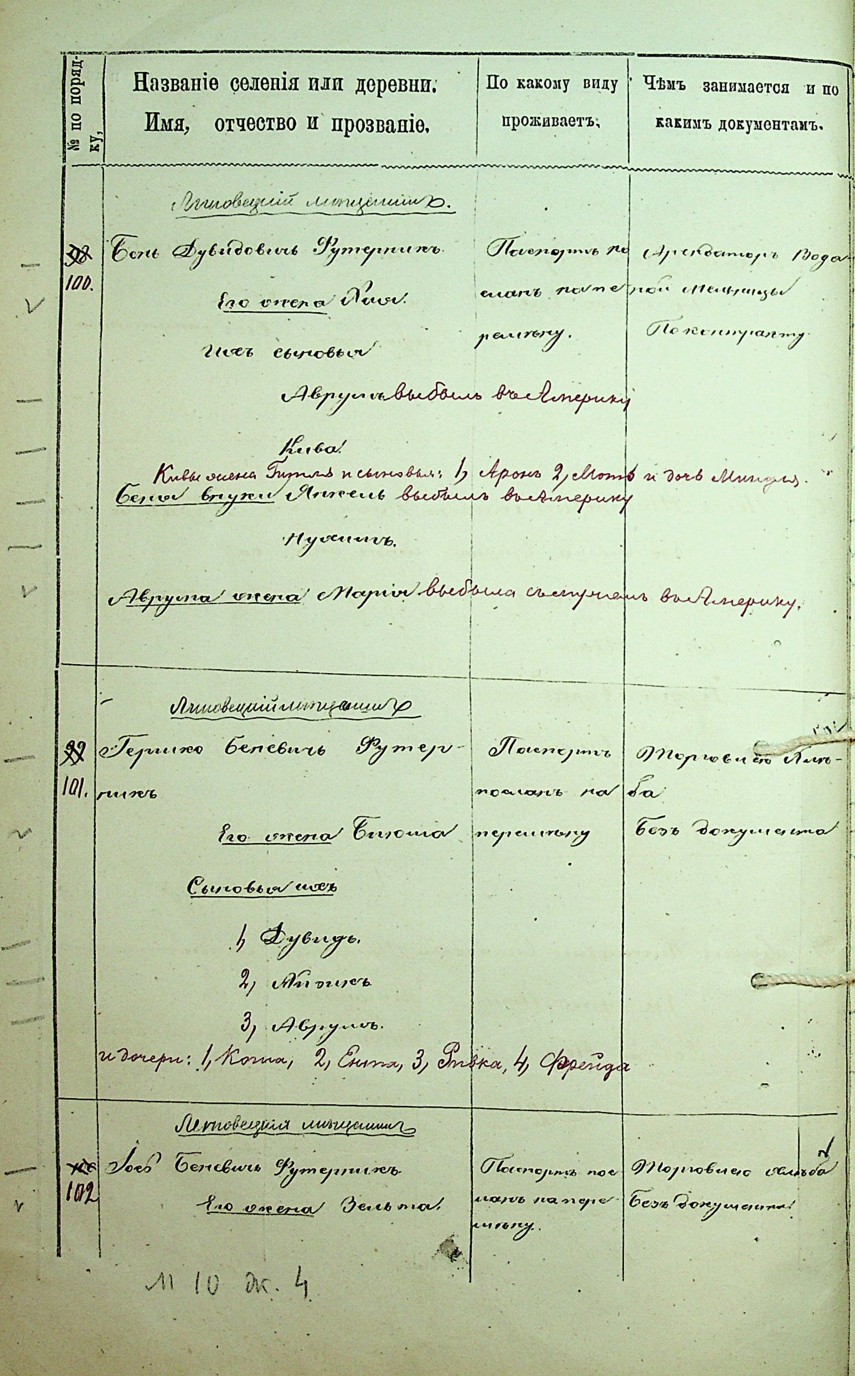 № по порядку,
Названіе селенія или деревни.
Имя, отчество и прозваніе.
По какому виду
проживаетъ.
Чѣмъ занимается и по
какимъ документамъ.
мѣщанинъ.
98
100.
Бень Дувидовичъ Футерникъ
Его жена
Ихъ сыновья
Аврумъ выбылъ въ Америку
Кива
Кивы жена Гитля и сыновья: 1, Аронъ 2, Мотя и дочь Миндля.
Беня внуки Янкель выбылъ въ Америку
Нухимъ.
Аврума жена Марія выбыла съ мужемъ въ Америку.
Паспортъ по
сланъ на пе
ремѣну.
Арендаторъ Водя
ной Мельницы
По контракту
мѣщанинъ
99
101.
Гершко Беневичъ Футер-
никъ
Его жена
Сыновья ихъ
1, Дувидъ.
2, Айзикъ
3, Аврумъ.
и дочери: 1, 2, Ента, 3, Ривка, 4, Фрейда
Паспортъ
посланъ на
перемѣну
Торговлею хлѣ-
ба
Безъ документа
мѣщанинъ
102
Беневичъ Футерникъ
Его жена Зельта.
Паспортъ пос
ланъ на пере
мѣну.
Торговлею хлѣба
Безъ документа
М 10 ж. 4